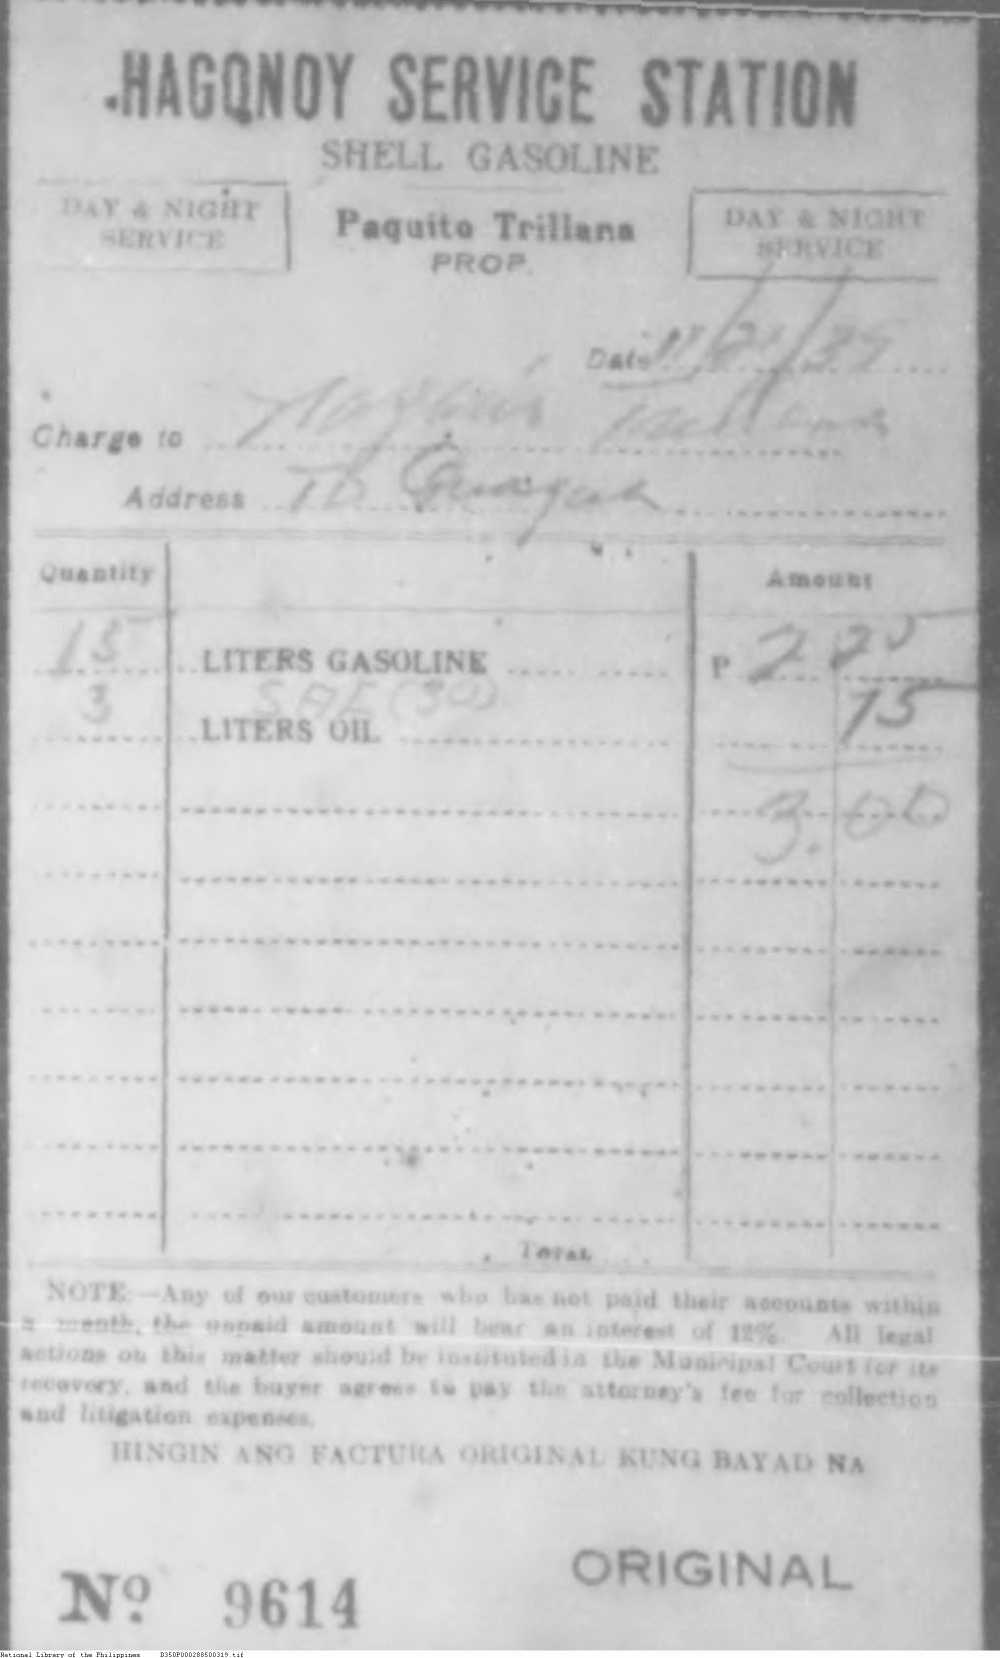 HAGONOY SERVICE STATION
SHELL GASOLINE
DAY & NIGHT
SERVICE
Paquito Trillana
PROP.
DAY & NIGHT
SERVICE
Date 11/21/39
Charge to
Address
Quantity Amount
15 LITERS GASOLINE P 2 25
SAE (30)
3 LITERS OIL 75
3.00
TOTAL
NOTE:—Any of our customers who has not paid their accounts within
a month, the unpaid amount will bear an interest of 12%. All legal
actions on this matter should be instituted in the Municipal Court for its
recovery, and the buyer agrees to pay the attorney's fee for collection
and litigation expenses.
HINGIN ANG FACTURA ORIGINAL KUNG BAYAD NA
ORIGINAL
Nº 9614
National Library of the Philippines D350P000288500319.tif